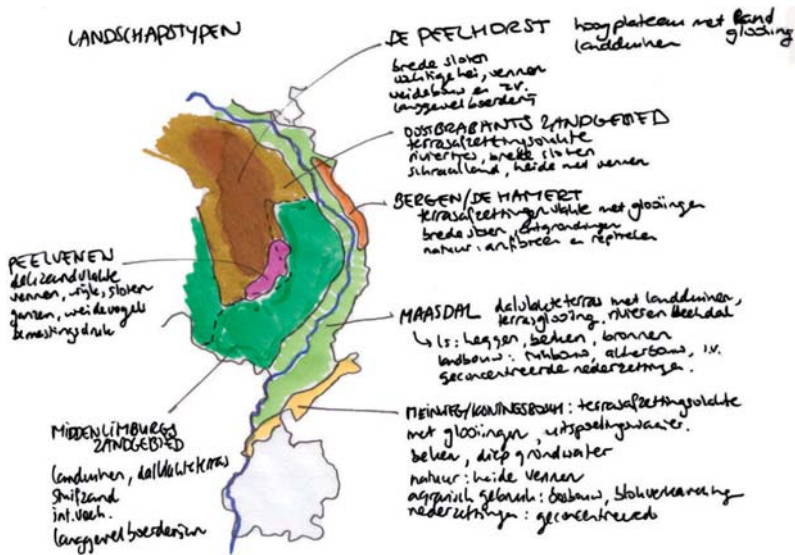 LANDSCHAPSTYPEN
DE PEELHORST
hoog plateau met Rand
glooiing
landduinen
brede sloten
vochtige hei, vennen
weidebouw en z.v.
langgevelboerderij
OOSTBRABANTS ZANDGEBIED
terrasafzettingsvlakte
riviertjes, brede sloten
schraalland, heide met vennen
BERGEN/DE HAMERT
terrasafzettingsvlakte met glooiingen
brede sloten, ontgrondingen
natuur: amfibieen en reptielen
PEELVENEN
dekzandvlakte
vennen, wijk, sloten
ganzen, weidevogels
bemestingsdruk
MAASDAL dalvlakteterras met landduinen,
terrasglooiing, rivier en beekdal
ls: heggen, beken, bronnen
landbouw: tuinbouw, akkerbouw, i.v.
geconcentreerde nederzettingen.
MEINWEG/KONINGSBOSCH: terrasafzettingsvlakte
met glooiingen, uitspoelingswaaier.
beken, diep grondwater
natuur: heide vennen
agrarisch gebruik: bosbouw, blokverkaveling
nederzettingen: geconcentreerd
MIDDENLIMBURGS
ZANDGEBIED
landduinen, dalvlakteterras
stuifzand
int. veeh.
langgevelboerderijen